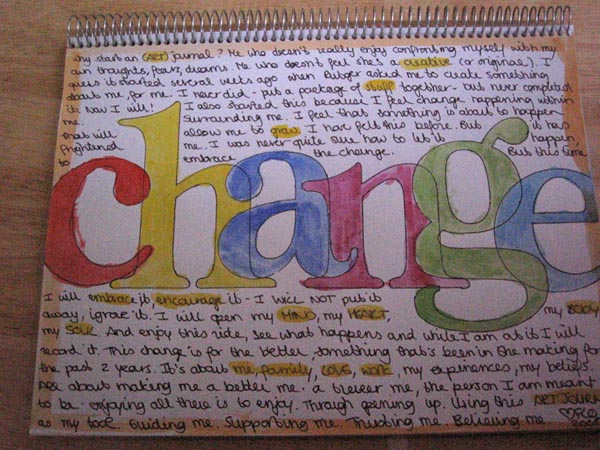 Why start an ART journal? Me who doesn't really enjoy confronting myself with my
own thoughts, fears, dreams. Me who doesn't feel she's a creative (or original). I
guess it started several weeks ago when asked me to create something
about me, for me. I never did - put a package of stuff together - but never completed
it. Now I will! I also started this because I feel change happening within
me. Surrounding me. I feel that something is about to happen
that will allow me to grow. I have felt this before. But it has
frightened me. I was never quite sure how to let it happen,
to embrace the change. But this time
change
I will embrace it, encourage it - I WILL NOT put it
away, ignore it. I will open my MIND, my HEART, my BODY
my SOUL. And enjoy this ride, see what happens and while I am at it I will
record it. This change is for the better. Something that's been in the making for
the past 2 years. It's about me, family, LOVE, work, my experiences, my beliefs.
about making me a better me. a me, the person I am meant
to be. enjoying all there is to enjoy. Through opening up. Using this ART JOURNAL
as my tool. Guiding me. Supporting me. Trusting me. Believing me